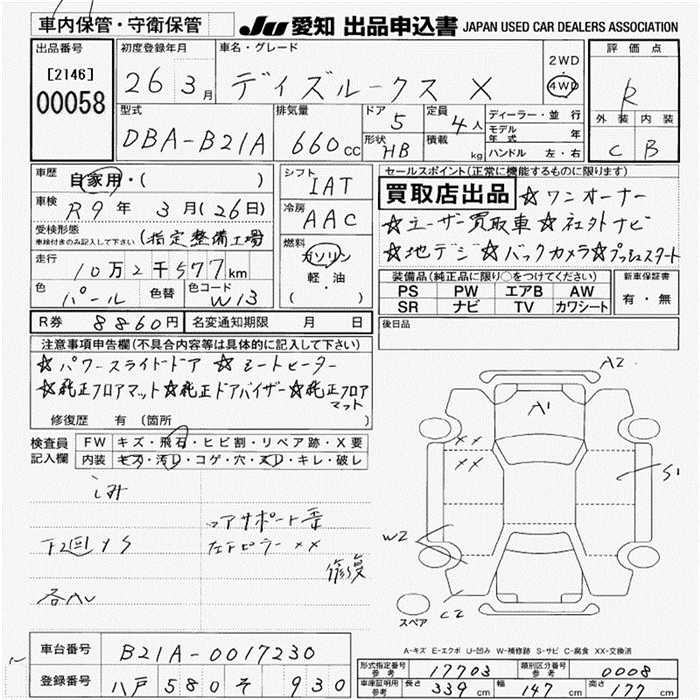 車内保管・守衛保管
JU 愛知 出品申込書 JAPAN USED CAR DEALERS ASSOCIATION
出品番号 [2146] 00058
初度登録年月 26 3月
車名・グレード デイズルークス X
2WD 4WD
評価点 R
外装 C 内装 B
型式 DBA-B21A
排気量 660cc
ドア 5
定員 4人
形状 HB
積載 kg
ディーラー・並行
モデル年式 年
ハンドル 左・右
車歴 自家用・( )
車検 R9年 3月(26日)
受検形態 車検付きのみ記入して下さい (指定整備工場)
走行 10万2千577km
色 パール 色替 色コード W13
シフト IAT
冷房 AAC
燃料 ガソリン 軽・油 ( )
セールスポイント(正常に機能するものに限ります)
買取店出品 ☆ワンオーナー
☆ユーザー買取車 ☆社外ナビ
☆地デジ ☆バックカメラ ☆プッシュスタート
装備品(純正品に限り○をつけてください)
PS PW エアB AW
SR ナビ TV カワシート
新車保証書 有・無
R券 8860円 名変通知期限 月 日
後日品
注意事項申告欄(不具合内容等は具体的に記入して下さい)
☆パワースライドドア ☆シートヒーター
☆純正フロアマット ☆純正ドアバイザー ☆純正フロアマット
修復歴 有 (箇所 )
検査員記入欄
FW キズ・飛石・ヒビ割・リペア跡・X要
内装 キズ・汚レ・コゲ・穴・スレ・キレ・破レ
コアサポート歪
左Fピラー XX
修復
A2
A1
XX
XX
S1
W2
C2
スペア
A-キズ E-エクボ U-凹み W-補修跡 S-サビ C-腐食 XX-交換済
車台番号 B21A-0017230
登録番号 八戸 580 そ 930
形式指定番号 参考 17703
類別区分番号 参考 0008
車庫証明用 参考 長さ 339cm 幅 147cm 高さ 177cm